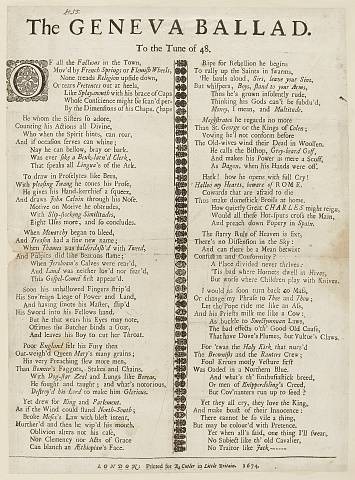 The GENEVA BALLAD.
To the Tune of 48.
OF all the Factions in the Town,
Mov'd by French Springs or Flemish Wheels,
None treads Religion upside down,
Or tears Pretences out at heels,
Like Splaymouth with his brace of Caps
Whose Conscience might be scan'd perhaps
By the Dimensions of his Chaps.
He whom the Sisters so adore,
Counting his Actions all Divine,
Who when the Spirit hints, can roar,
And if occasion serves can whine;
Nay he can bellow, bray or bark.
Was ever sike a Beuk-larn'd Clerk,
That speaks all Lingua's of the Ark.
To draw in Proselytes like Bees,
With pleasing Twang he tones his Prose,
He gives his Hand-kerchief a squeez,
And draws John Calvin through his Nose.
Motive on Motive he obtrudes,
With Slip-stocking Similitudes,
Eight Uses more, and so concludes.
When Monarchy began to bleed,
And Treason had a fine new name;
When Thames was balderdash'd with Tweed,
And Pulpits did like Beacons flame;
When Jeroboam's Calves were rear'd,
And Laud was neither lov'd nor fear'd,
This Gospel-Comet first appear'd.
Soon his unhallowed Fingers strip'd
His Sov'reign Liege of Power and Land,
And having smote his Master, slip'd
His Sword into his Fellows hand.
But he that wears his Eyes may note,
Oft-times the Butcher binds a Goat,
And leaves his Boy to cut her Throat.
Poor England felt his Fury then
Out-weigh'd Queen Mary's many grains;
His very Preaching slew more men,
Than Bonner's Faggots, Stakes and Chains.
With Dog-Star Zeal and Lungs like Boreas,
He fought and taught; and what's notorious,
Destroy'd his Lord to make him Glorious.
Yet drew for King and Parliament.
As if the Wind could stand North-South;
Broke Moses's Law with blest intent,
Murther'd and then he wip'd his mouth.
Oblivion alters not his case,
Nor Clemency nor Acts of Grace
Can blanch an Æthiopian's Face.
Ripe for Rebellion he begins
To rally up the Saints in swarms,
He bauls aloud, Sirs, leave your Sins,
But whispers, Boys, stand to your Arms,
Thus he's grown insolently rude,
Thinking his Gods can't be subdu'd,
Money, I mean, and Multitude.
Magistrates he regards no more
Than St. George or the Kings of Colen;
Vowing he'l not conform before
The Old-wives wind their Dead in Woollen.
He calls the Bishop, Gray-hear'd Goff,
And makes his Power as mere a Scoff,
As Dagon, when his Hands were off.
Hark! how he opens with full Cry!
Hallow my Hearts, beware of ROME.
Cowards that are afraid to die
Thus make domestick Broils at home.
How quietly Great CHARLES might reign,
Would all these Hot-spurs cross the Main,
And preach down Popery in Spain.
The starry Rule of Heaven is fixt,
There's no Dissension in the Sky:
And can there be a Mean betwixt
Confusion and Conformity?
A Place divided never thrives:
'Tis bad where Hornets dwell in Hives,
But worse where Children play with Knives.
I would as soon turn back to Mass,
Or change my Phrase to Thee and Thou,
Let the Pope ride me like an Ass,
And his Priests milk me like a Cow;
As buckle to Smectymnuan Laws,
The bad effects o'th' Good Old Cause,
That have Dove's Plumes, but Vultur's Claws.
For 'twas the Holy Kirk, that nurs'd
The Brownists and the Ranters Crew;
Foul Errors motly Vesture first
Was Oaded in a Northern Blue.
And what's th' Enthusiastick breed,
Or men of Knipperdoling's Creed,
But Cov'nanters run up to seed?
Yet they all cry, they love the King,
And make boast of their Innocence:
There cannot be so vile a thing,
But may be colour'd with Pretence.
Yet when all's said, one thing I'll swear,
No Subject like th' old Cavalier,
No Traitor like Jack—
LONDON: Printed for R. Cutler in Little Britain. 1674.